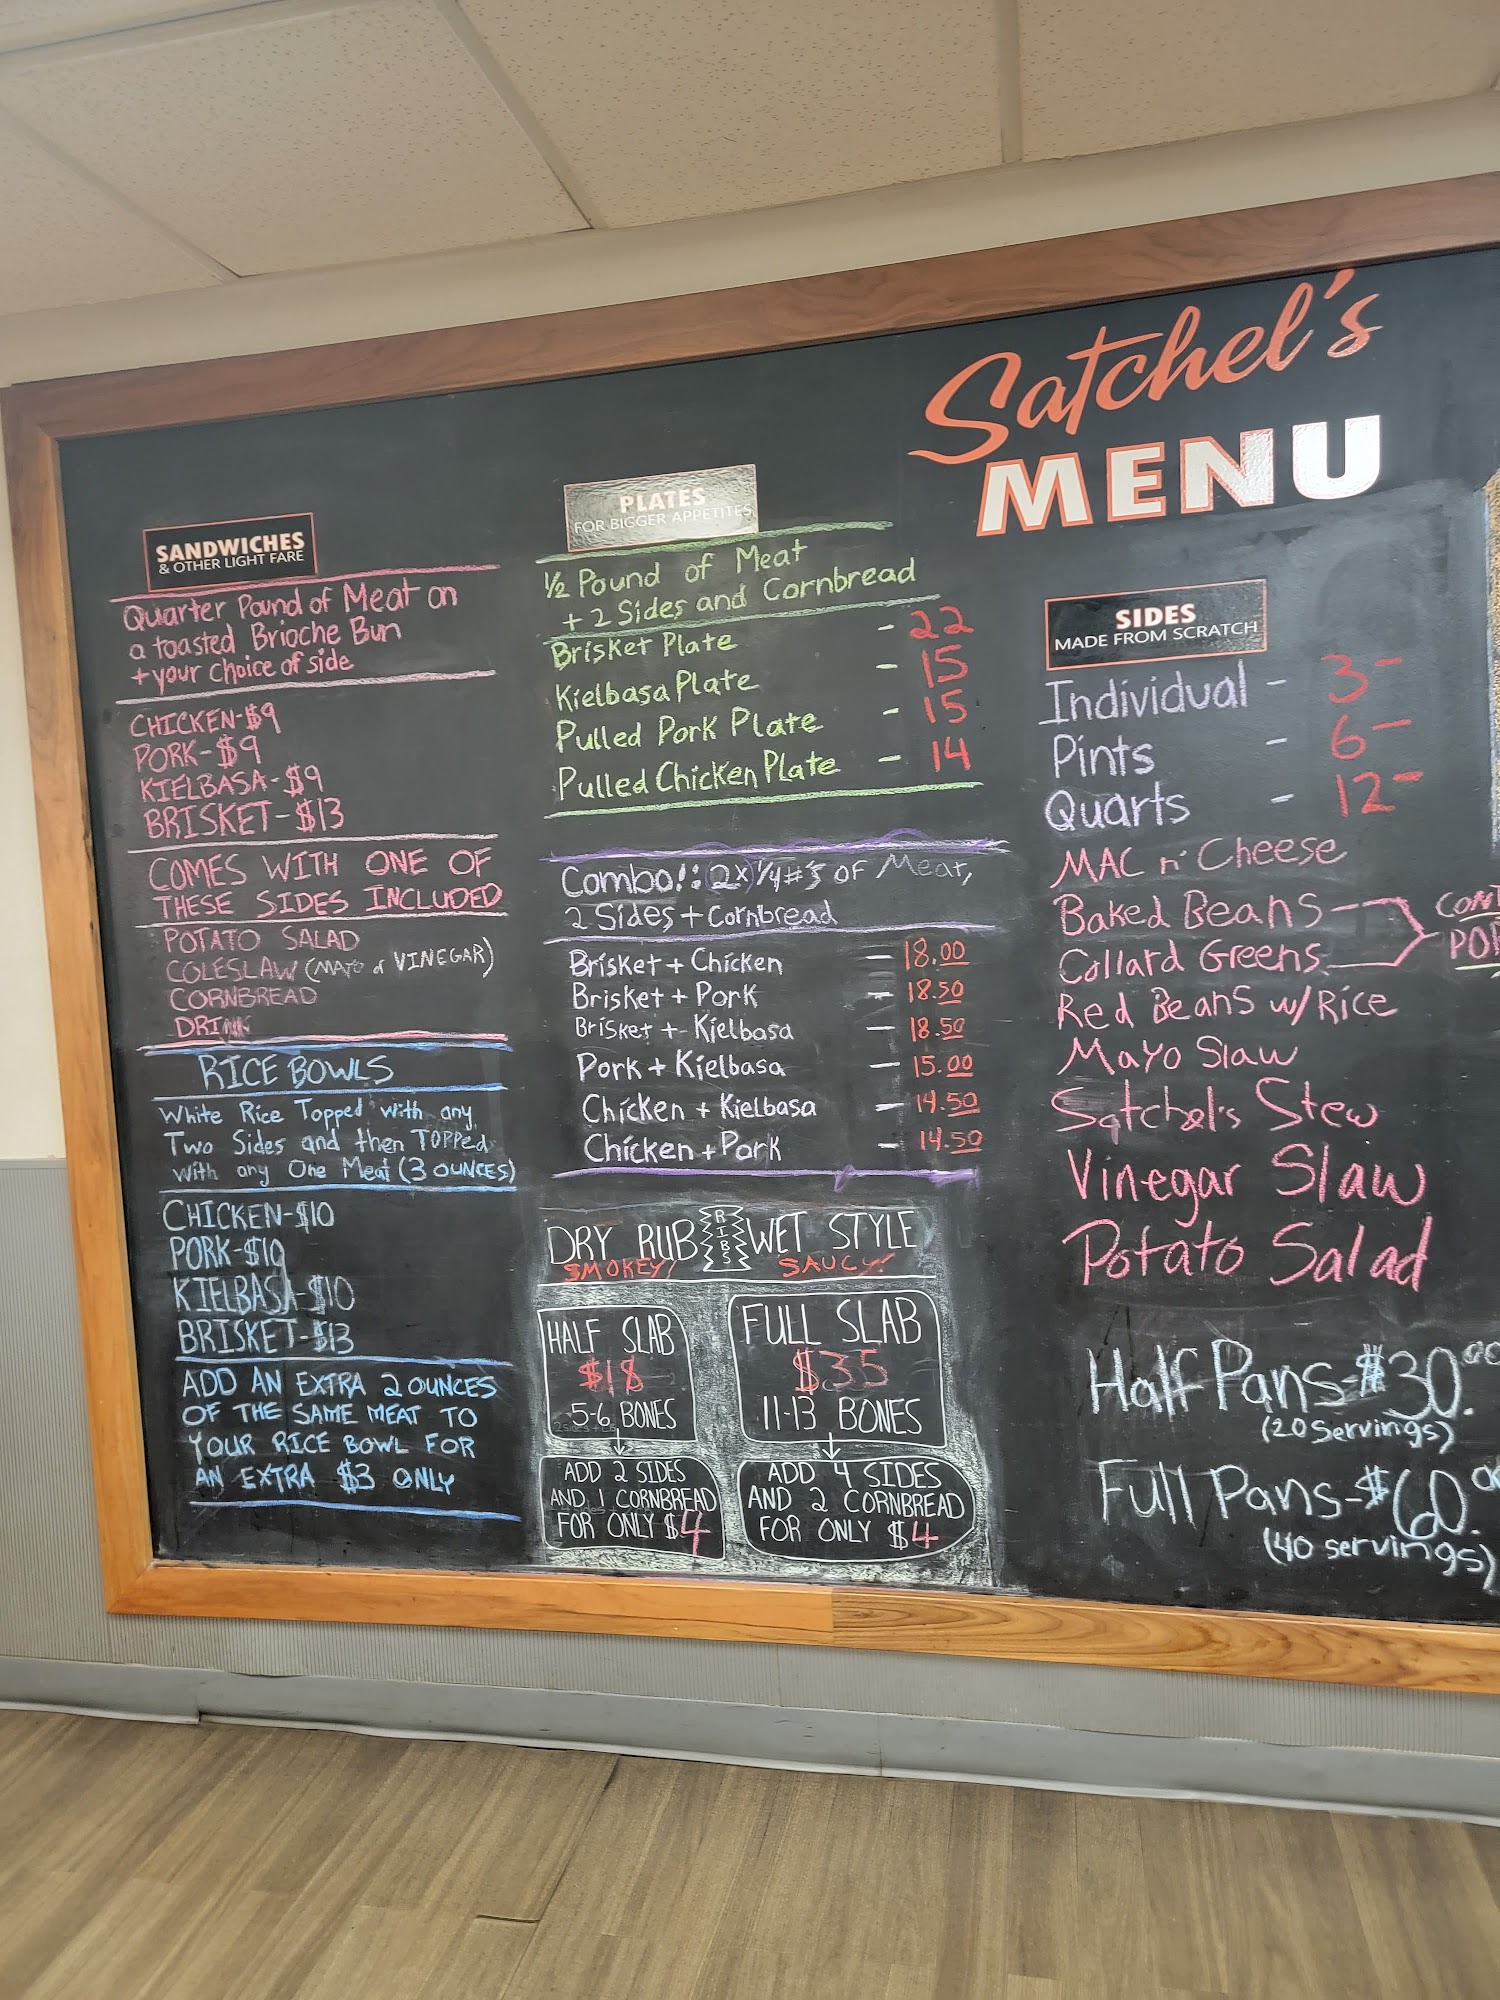 Satchel's
MENU
SANDWICHES
& OTHER LIGHT FARE
Quarter Pound of Meat on
a toasted Brioche Bun
+ your choice of side
CHICKEN-$9
PORK-$9
KIELBASA-$9
BRISKET-$13
COMES WITH ONE OF
THESE SIDES INCLUDED
POTATO SALAD
COLESLAW (MAYO or VINEGAR)
CORNBREAD
DRINK
RICE BOWLS
White Rice Topped with any
Two Sides and then TOPPED
with any One Meat (3 OUNCES)
CHICKEN-$10
PORK-$10
KIELBASA-$10
BRISKET-$13
ADD AN EXTRA 2 OUNCES
OF THE SAME MEAT TO
YOUR RICE BOWL FOR
AN EXTRA $3 ONLY
PLATES
FOR BIGGER APPETITES
1/2 Pound of Meat
+ 2 Sides and Cornbread
Brisket Plate - 22
Kielbasa Plate - 15
Pulled Pork Plate - 15
Pulled Chicken Plate - 14
Combo!: 2x 1/4#'s OF Meat,
2 Sides + Cornbread
Brisket + Chicken - 18.00
Brisket + Pork - 18.50
Brisket + Kielbasa - 18.50
Pork + Kielbasa - 15.00
Chicken + Kielbasa - 14.50
Chicken + Pork - 14.50
DRY RUB RIBS WET STYLE
SMOKEY! SAUCY!
HALF SLAB
$18
5-6 BONES
ADD 2 SIDES
AND 1 CORNBREAD
FOR ONLY $4
FULL SLAB
$35
11-13 BONES
ADD 4 SIDES
AND 2 CORNBREAD
FOR ONLY $4
SIDES
MADE FROM SCRATCH
Individual - 3-
Pints - 6-
Quarts - 12-
MAC n' Cheese
Baked Beans
Collard Greens
CONT
POR
Red Beans w/ Rice
Mayo Slaw
Satchel's Stew
Vinegar Slaw
Potato Salad
Half Pans-$30.00
(20 Servings)
Full Pans-$60.00
(40 servings)